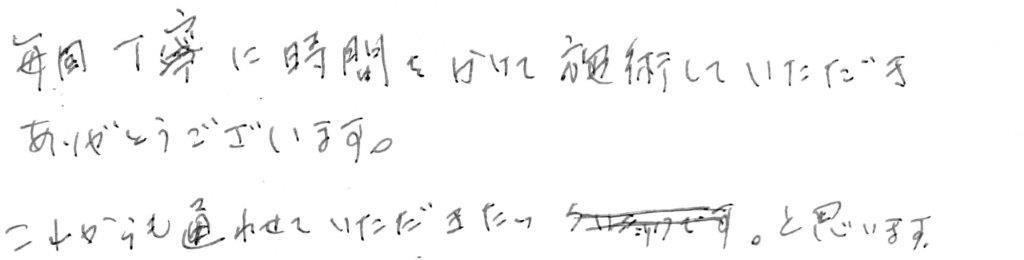 毎回丁寧に時間をかけて施術していただき
ありがとうございます。
これからも通わせていただきたい 。と思います。